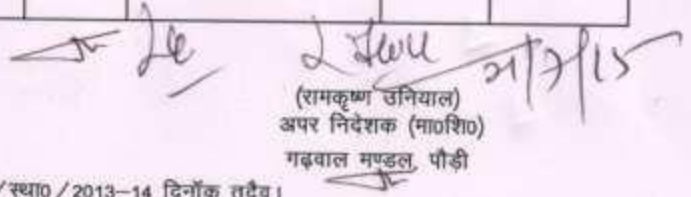 21/7/15
(रामकृष्ण उनियाल)
अपर निदेशक (मा0शि0)
गढ़वाल मण्डल, पौड़ी
/स्था0/2013–14 दिनॉक तदैव।